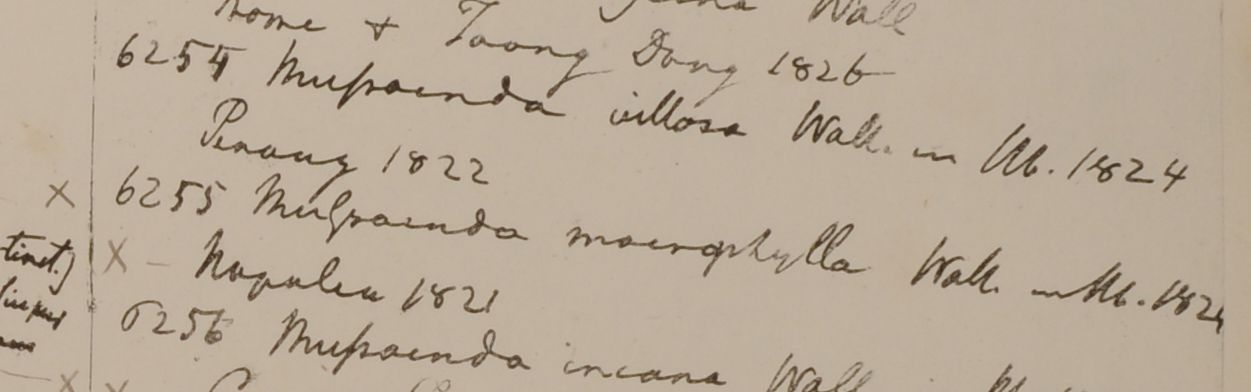 Wall
+ Taong Dong 1826
6254 Mussaenda villosa Wall. in Hb. 1824
Penang 1822
x 6255 Mussaenda macrophylla Wall. in Hb. 1824
tinct.) x - Napalia 1821
6256 Mussaenda incana Wall
x x